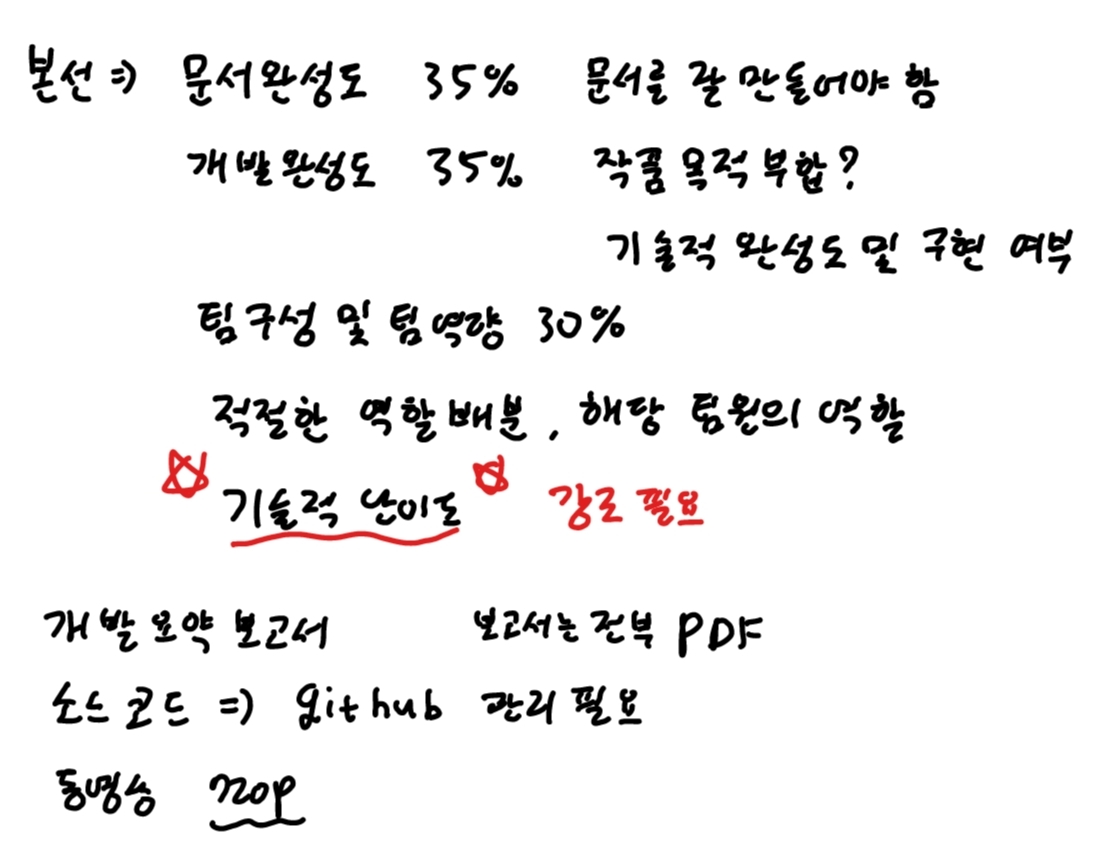 본선 => 문서완성도 35% 문서를 잘 만들어야 함
개발완성도 35% 작품 목적 부합?
기술적 완성도 및 구현 여부
팀구성 및 팀역량 30%
적절한 역할배분, 해당 팀원의 역할
기술적 난이도 강조 필요
개발요약보고서 보고서는 전부 PDF
소스코드 => github 관리필요
동영상 720p